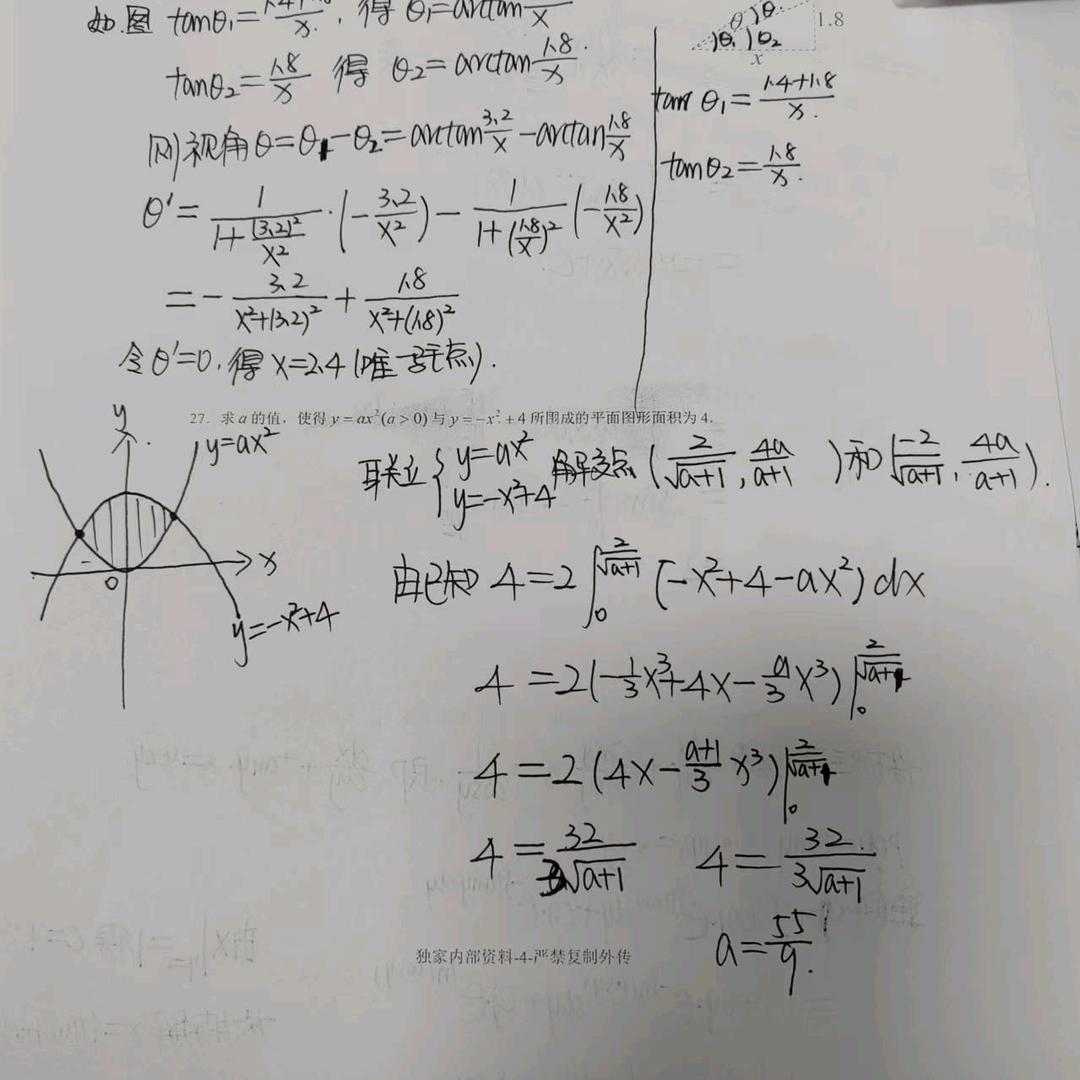 如图 tanθ₁=1.4+1.8/x, 得 θ₁=arctan /x
tanθ₂=1.8/x 得 θ₂=arctan 1.8/x.
则视角θ=θ₁-θ₂=arctan 3.2/x -arctan 1.8/x
θ'= 1/(1+(3.2)²/x²)·(-3.2/x²)- 1/(1+(1.8/x)²)(-1.8/x²)
=- 3.2/(x²+(3.2)²) + 1.8/(x²+(1.8)²)
令θ'=0,得 x=2.4(唯一驻点).
θ θ 1.8
θ₁ θ₂
x
tan θ₁=1.4+1.8/x.
tanθ₂=1.8/x.
27. 求 a 的值, 使得 y=ax²(a>0) 与 y=-x²+4 所围成的平面图形面积为 4.
y
y=ax²
x
0
y=-x²+4
联立{y=ax² y=-x²+4 解交点(2/√(a+1), 4a/(a+1) )和(-2/√(a+1), 4a/(a+1)).
由已知 4=2∫₀^(2/√(a+1)) (-x²+4-ax²)dx
4=2(-1/3x³+4x-a/3x³)|₀^(2/√(a+1))
4=2(4x-(a+1)/3 x³)|₀^(2/√(a+1))
4=32/3√(a+1) 4=32/3√(a+1)
a=55/9.
独家内部资料-4-严禁复制外传